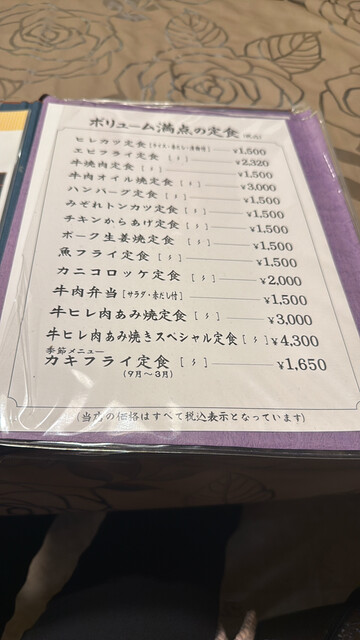 ボリューム満点の定食
ヒレカツ定食 ¥1,500
エビフライ定食 [〃] ¥2,320
牛焼肉定食 [〃] ¥1,500
牛肉オイル焼定食 [〃] ¥3,000
ハンバーグ定食 [〃] ¥1,500
みぞれトンカツ定食 [〃] ¥1,500
チキンからあげ定食 [〃] ¥1,500
ポーク生姜焼定食 [〃] ¥1,500
魚フライ定食 [〃] ¥1,500
カニコロッケ定食 [〃] ¥2,000
牛肉弁当[サラダ・赤だし付] ¥1,500
牛ヒレ肉あみ焼定食 [〃] ¥3,000
牛ヒレ肉あみ焼きスペシャル定食[〃] ¥4,300
季節メニュー
カキフライ定食 [〃] ¥1,650
(9月〜3月)
(当店の価格はすべて税込表示となっています)